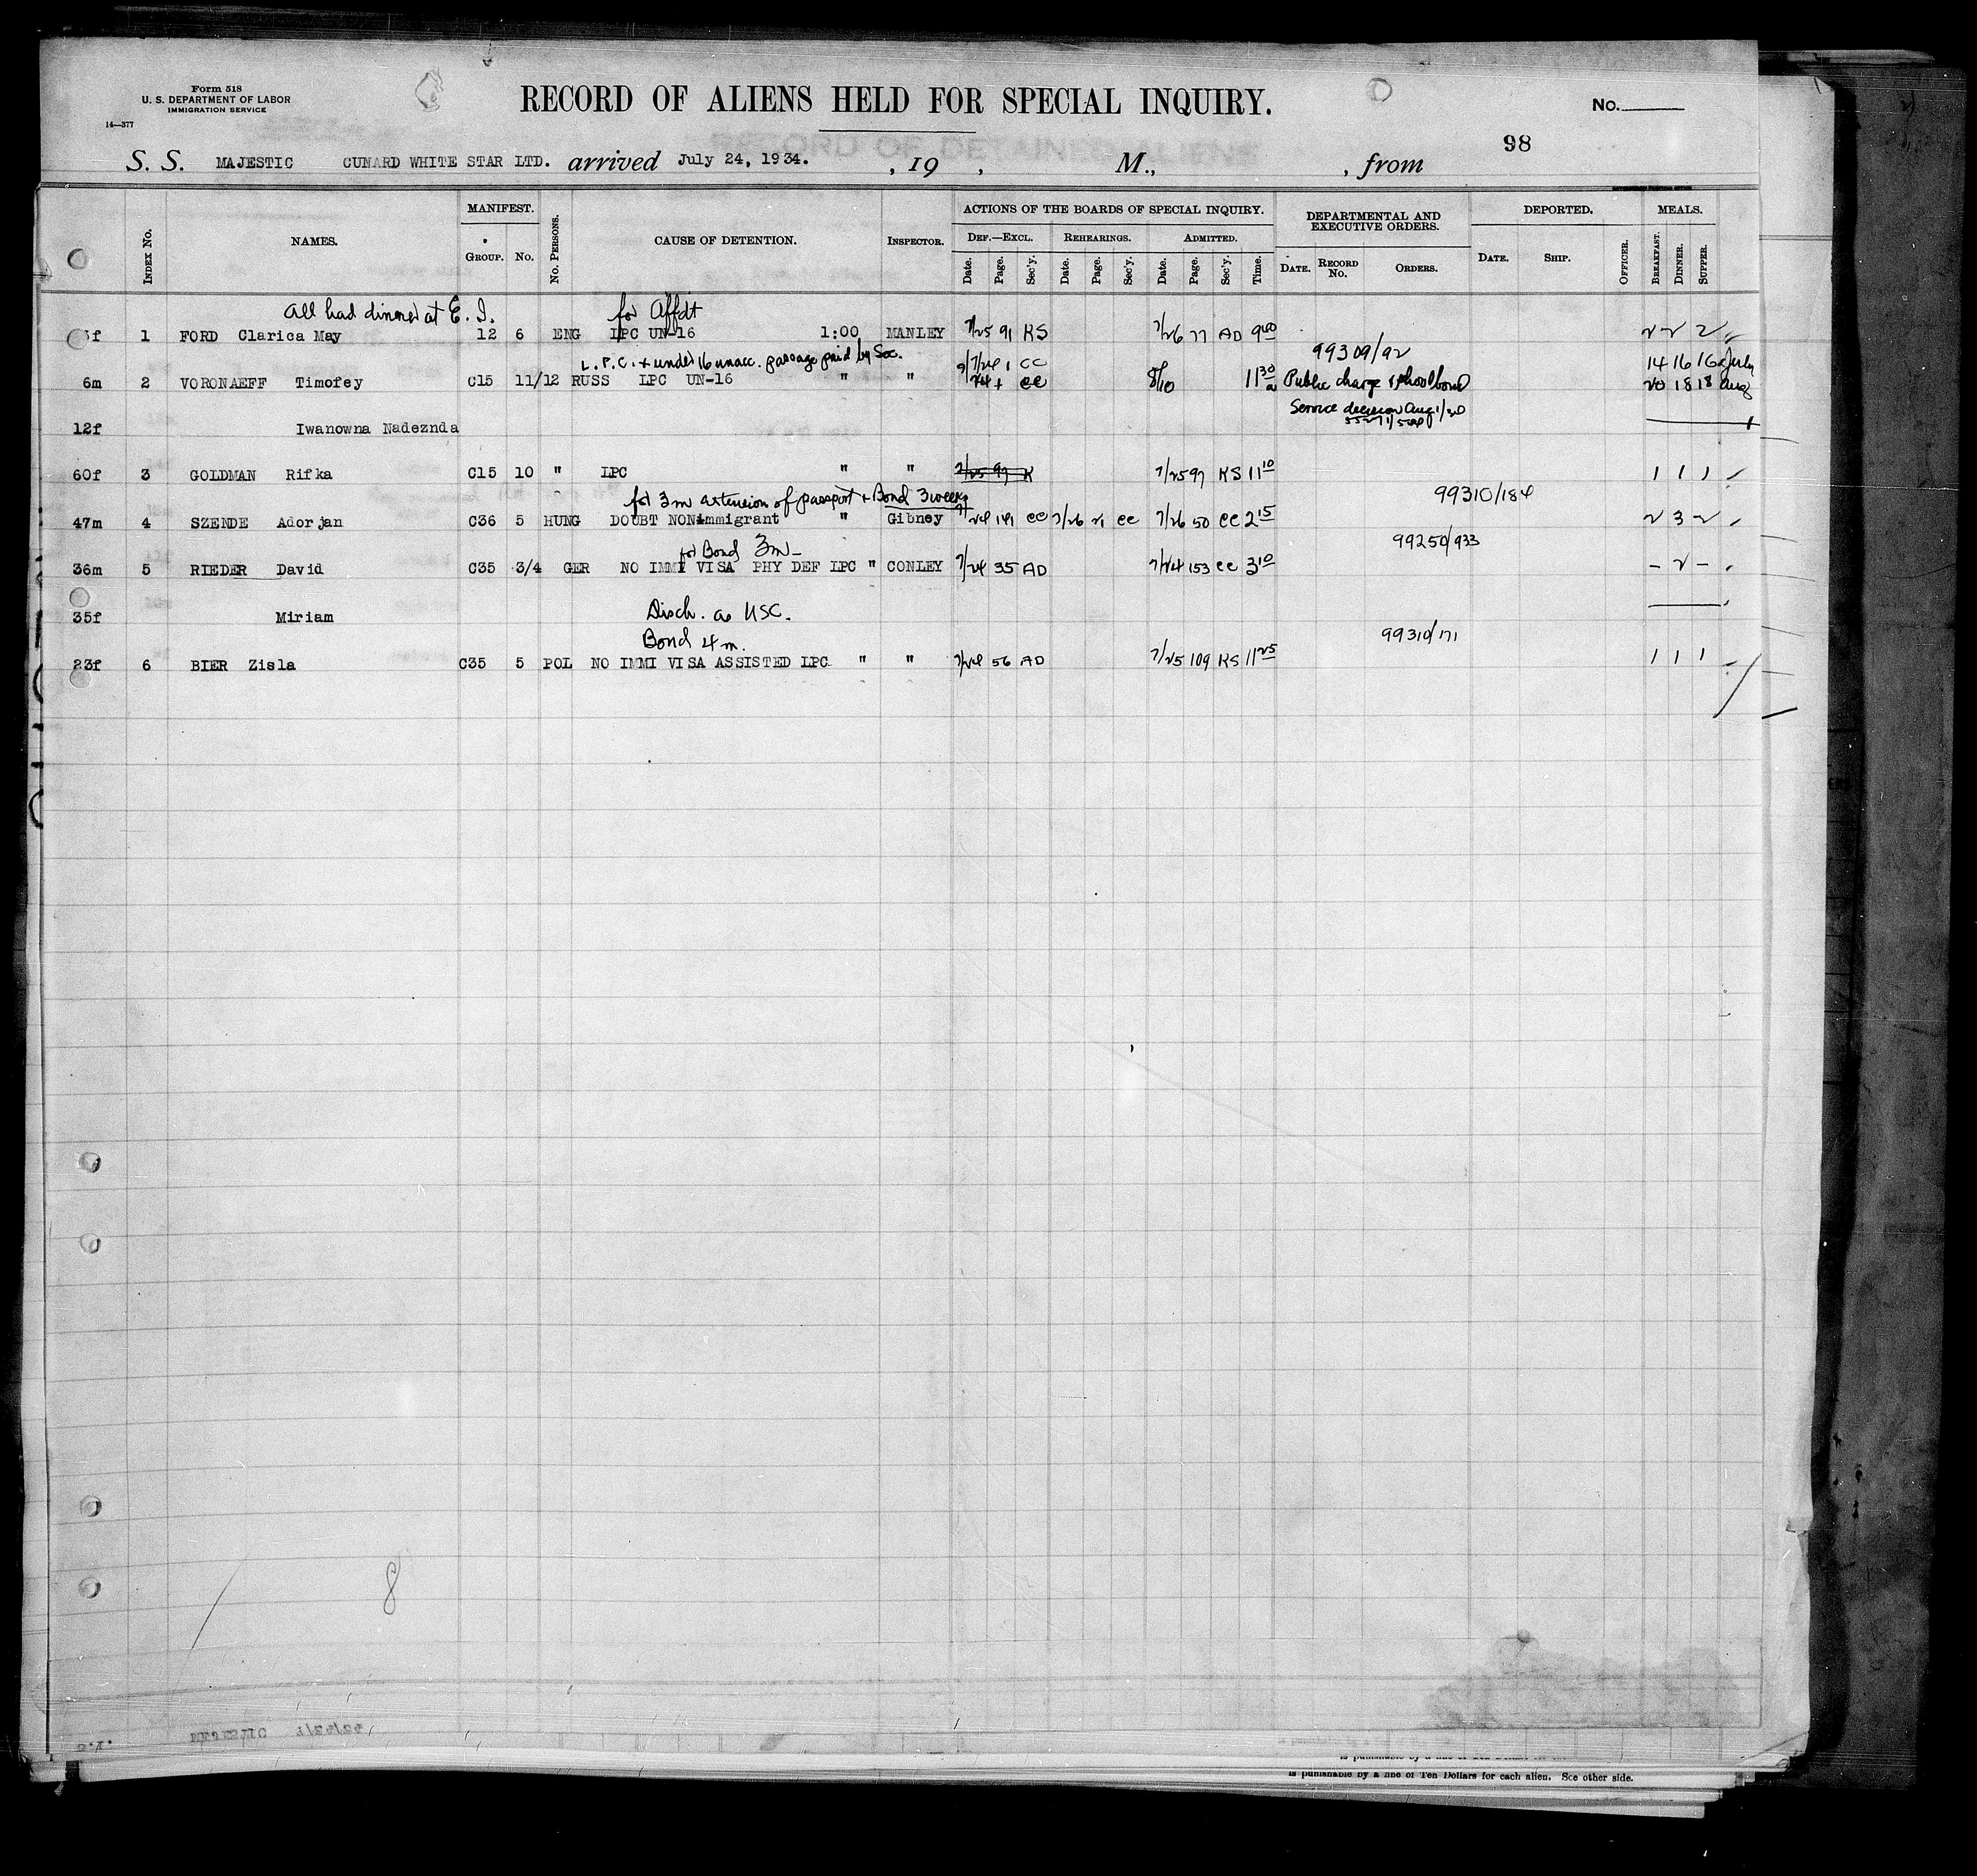 Form 518
U. S. DEPARTMENT OF LABOR
IMMIGRATION SERVICE
14—377
RECORD OF ALIENS HELD FOR SPECIAL INQUIRY.
No.
98
S. S. MAJESTIC CUNARD WHITE STAR LTD. arrived July 24, 1934. , 19 , M., , from
INDEX No. NAMES. MANIFEST. GROUP. No. No. PERSONS. CAUSE OF DETENTION. INSPECTOR. ACTIONS OF THE BOARDS OF SPECIAL INQUIRY. DEPARTMENTAL AND EXECUTIVE ORDERS. DEPORTED. OFFICER. MEALS.
DEF.—EXCL. REHEARINGS. ADMITTED.
Date. Page. Sec'y. Date. Page. Sec'y. Date. Page. Sec'y. Time. DATE. RECORD No. ORDERS. DATE. SHIP. BREAKFAST. DINNER. SUPPER.
All had dinner at E. I. for Affdt
f 1 FORD Clarica May 12 6 ENG LPC UN-16 1:00 MANLEY 7/25 91 KS 7/26 77 AD 9 40 2 2 2
L.P.C. + under 16 unacc. passage paid by Soc. 7/24 1 CC 99309/92 14 16 16 July
6m 2 VORONAEFF Timofey C15 11/12 RUSS LPC UN-16 " " CC 8/10 11 30 a Public charge & school bond 20 18 18 Aug
Service decision Aug
12f Iwanowna Nadeznda
60f 3 GOLDMAN Rifka C15 10 " LPC " " 7/25 97 K 7/25 97 KS 11 10 1 1 1
for 3m extension of passport + Bond 3 weeks 99310/184
47m 4 SZENDE Adorjan C36 5 HUNG DOUBT NONimmigrant " Gibney 7/24 141 CC 7/26 21 CC 7/26 50 CC 2 15 2 3 2
for Bond 3m 99250/933
36m 5 RIEDER David C35 3/4 GER NO IMMI VISA PHY DEF LPC " CONLEY 7/24 35 AD 7/24 153 CC 3 10 – 2 –
35f Miriam Disch. as USC.
Bond 4m. 99310/171
23f 6 BIER Zisla C35 5 POL NO IMMI VISA ASSISTED LPC " " 7/24 56 AD 7/25 109 KS 11 25 1 1 1
8
is punishable by a fine of Ten Dollars for each alien. See other side.